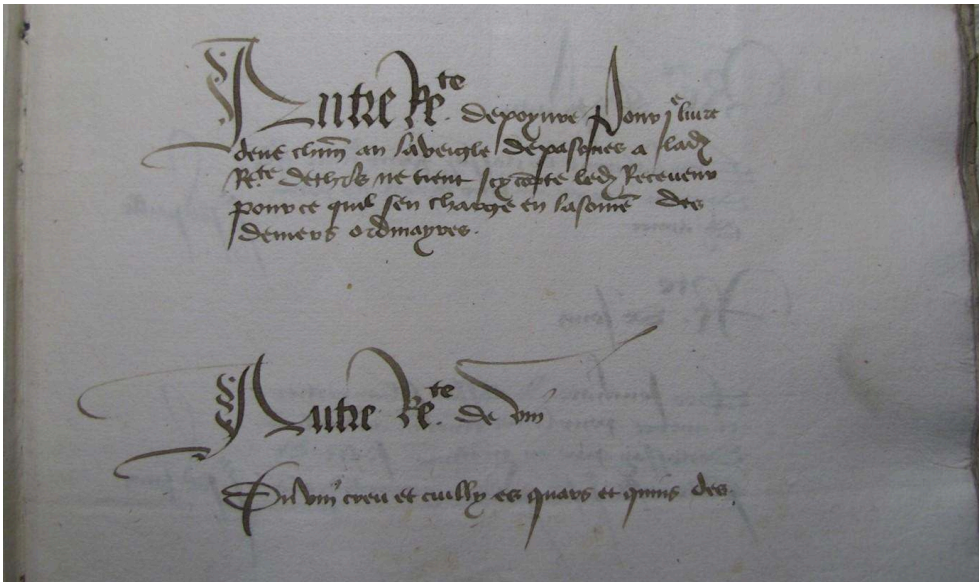 Autre Rete de poyvre Pour j livre
deue chun an la veigle de pasques a lad
Rete de thos ne tient icy copte led Receveur
pour ce quil sen charge en la some des
deniers ordinayres.
Autre Rete de vin
Du vin creu et cuilly es quars et quins des